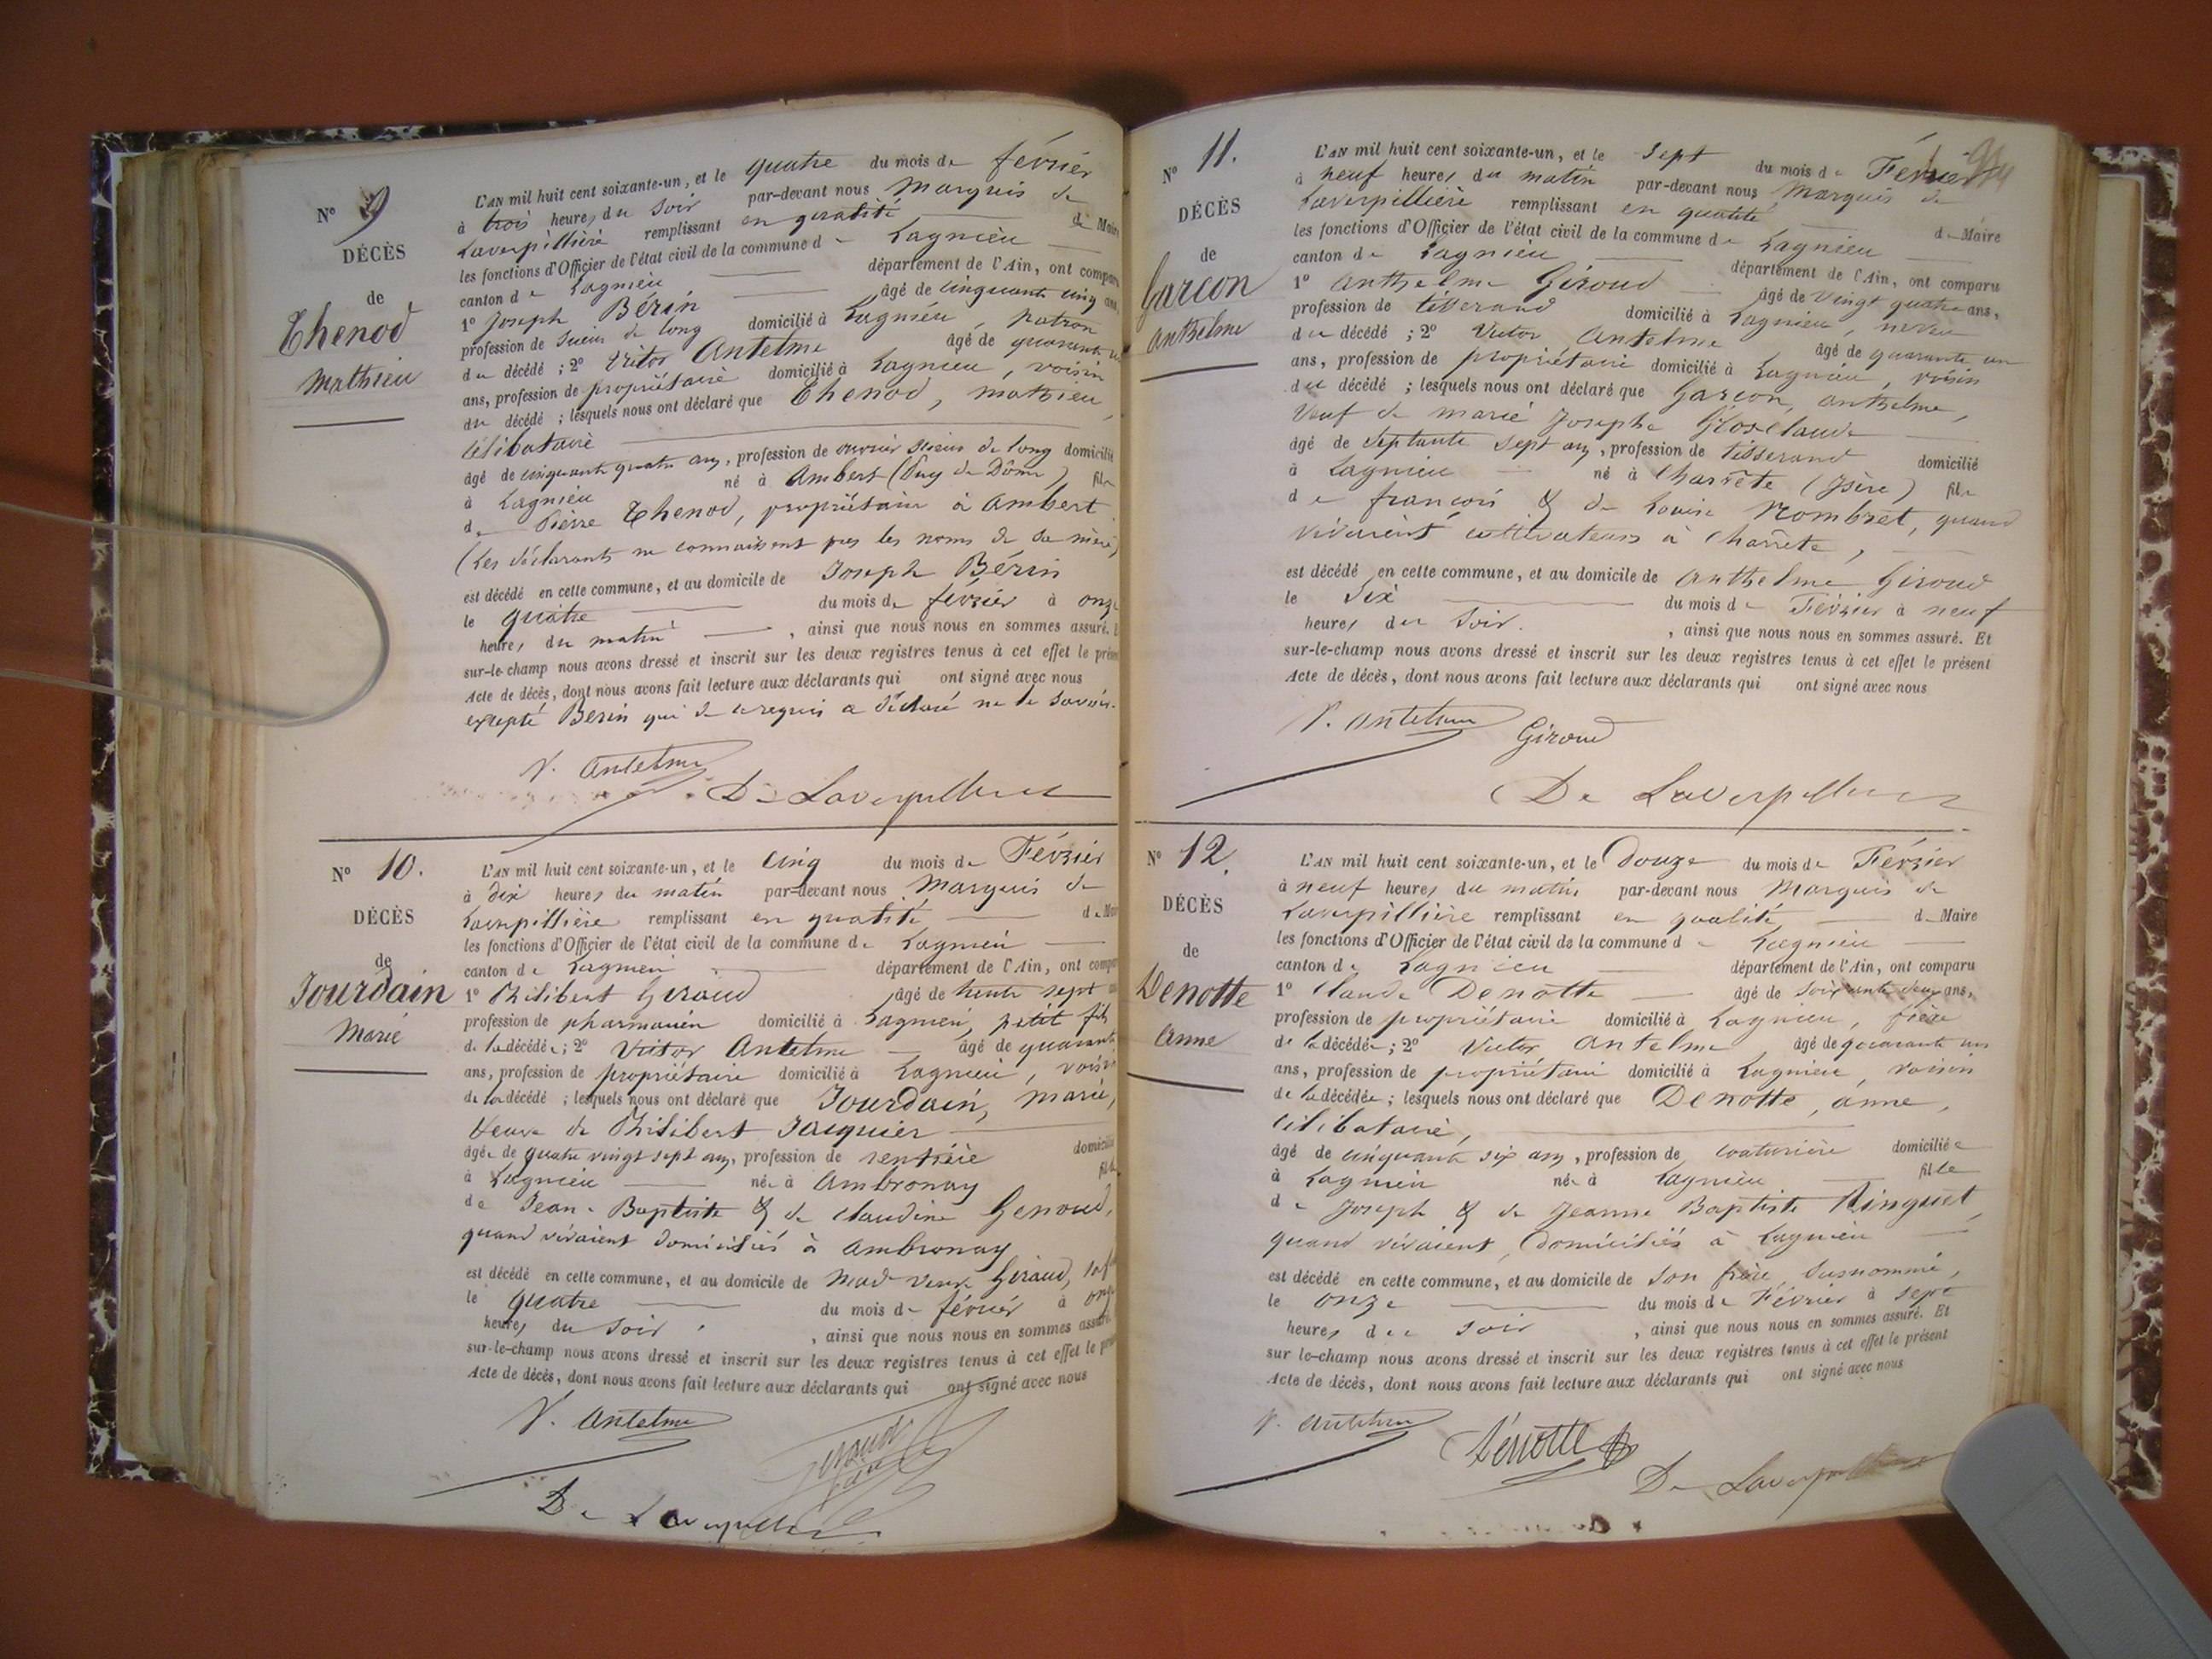 N° 9
DÉCÈS
de
Thenod
Mathieu
L'AN mil huit cent soixante-un, et le quatre du mois de février
à trois heures du soir par-devant nous Marquis de
Laverpillière remplissant en qualité de Maire
les fonctions d'Officier de l'état civil de la commune de Lagnieu
canton de Lagnieu département de l'Ain, ont comparu
1° Joseph Bérin âgé de cinquante cinq ans,
profession de scieur de long domicilié à Lagnieu, patron
du décédé ; 2° Victor Antelme âgé de quarante un
ans, profession de propriétaire domicilié à Lagnieu, voisin
du décédé ; lesquels nous ont déclaré que Thenod, mathieu,
célibataire
âgé de cinquante quatre ans, profession de ouvrier scieur de long domicilié
à Lagnieu né à Ambert (Puy de Dôme) fils
de Pierre Thenod, propriétaire à Ambert
(Les déclarants ne connaissent pas les noms de sa mère)
est décédé en cette commune, et au domicile de Joseph Bérin
le quatre du mois de février à onze
heures du matin , ainsi que nous nous en sommes assuré. Et
sur-le-champ nous avons dressé et inscrit sur les deux registres tenus à cet effet le présent
Acte de décès, dont nous avons fait lecture aux déclarants qui ont signé avec nous
excepté Berin qui de ce requis a déclaré ne le savoir.
V. Antelme
De Laverpilliere
N° 10.
DÉCÈS
de
Jourdain
Marie
L'AN mil huit cent soixante-un, et le cinq du mois de Février
à dix heures du matin par-devant nous Marquis de
Laverpillière remplissant en qualité de Maire
les fonctions d'Officier de l'état civil de la commune de Lagnieu
canton de Lagnieu département de l'Ain, ont comparu
1° Philibert Giraud âgé de trente sept
profession de pharmacien domicilié à Lagnieu, petit fils
de la décédée; 2° Victor Antelme âgé de quarante
ans, profession de propriétaire domicilié à Lagnieu, voisin
de la décédé ; lesquels nous ont déclaré que Jourdain, marie,
Veuve de Philibert Jacquier
âgée de quatre vingt sept ans, profession de rentière domicilié
à Lagnieu née à Ambronay fille
de Jean-Baptiste & de Claudine Genoud,
quand vivaient domiciliés à Ambronay
est décédé en cette commune, et au domicile de Mad. veuve Giraud,
le quatre du mois de février à onze
heures du soir , ainsi que nous nous en sommes assuré.
sur-le-champ nous avons dressé et inscrit sur les deux registres tenus à cet effet le présent
Acte de décès, dont nous avons fait lecture aux déclarants qui ont signé avec nous
V. Antelme
Giraud
De Laverpilliere
N° 11.
DÉCÈS
de
Garçon
Anthelme
L'AN mil huit cent soixante-un, et le sept du mois de Février
à neuf heures du matin par-devant nous Marquis de
Laverpillière remplissant en qualité de Maire
les fonctions d'Officier de l'état civil de la commune de Lagnieu
canton de Lagnieu département de l'Ain, ont comparu
1° Anthelme Giroud âgé de vingt quatre ans,
profession de tisserand domicilié à Lagnieu, neveu
du décédé ; 2° Victor Antelme âgé de quarante un
ans, profession de propriétaire domicilié à Lagnieu, voisin
du décédé ; lesquels nous ont déclaré que Garçon, anthelme,
Veuf de marie Josephe Closclaude
âgé de septante sept ans, profession de tisserand domicilié
à Lagnieu né à Charrète (Isère) fils
de françois & de Louise Mombret, quand
vivaient cultivateurs à Charrète,
est décédé en cette commune, et au domicile de Anthelme Giroud
le six du mois de Février à neuf
heures du soir. , ainsi que nous nous en sommes assuré. Et
sur-le-champ nous avons dressé et inscrit sur les deux registres tenus à cet effet le présent
Acte de décès, dont nous avons fait lecture aux déclarants qui ont signé avec nous
V. Antelme
Giroud
De Laverpilliere
N° 12.
DÉCÈS
de
Denotte
Anne
L'AN mil huit cent soixante-un, et le Douze du mois de Février
à neuf heures du matin par-devant nous Marquis de
Laverpillière remplissant en qualité de Maire
les fonctions d'Officier de l'état civil de la commune de Lagnieu
canton de Lagnieu département de l'Ain, ont comparu
1° Claude Denotte âgé de soixante deux ans,
profession de propriétaire domicilié à Lagnieu, frère
de la décédée; 2° Victor Antelme âgé de quarante un
ans, profession de propriétaire domicilié à Lagnieu, voisin
de la décédée; lesquels nous ont déclaré que Denotte, anne,
célibataire,
âgé de cinquante six ans, profession de couturière domiciliée
à Lagnieu née à Lagnieu fille
de Joseph & de Jeanne Baptiste Ringuet
quand vivaient, domiciliés à Lagnieu
est décédé en cette commune, et au domicile de son frère, susnommé,
le onze du mois de Février à sept
heures du soir , ainsi que nous nous en sommes assuré. Et
sur le-champ nous avons dressé et inscrit sur les deux registres tenus à cet effet le présent
Acte de décès, dont nous avons fait lecture aux déclarants qui ont signé avec nous
V. Antelme
Denotte
De Laverpilliere